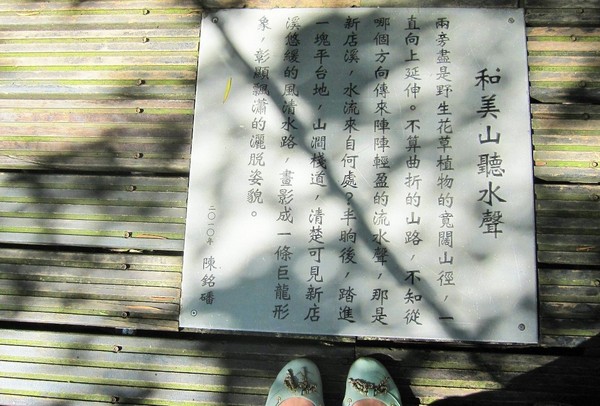 和美山聽水聲
兩旁盡是野生花草植物的寬闊山徑,一
直向上延伸。不算曲折的山路,不知從
哪個方向傳來陣陣輕盈的流水聲,那是
新店溪,水流來自何處?半晌後,踏進
一塊平台地,山澗棧道,清楚可見新店
溪悠緩的風清水路,晝影成一條巨龍形
象,彰顯飄瀟的灑脫姿貌。
二〇一〇年 陳銘磻